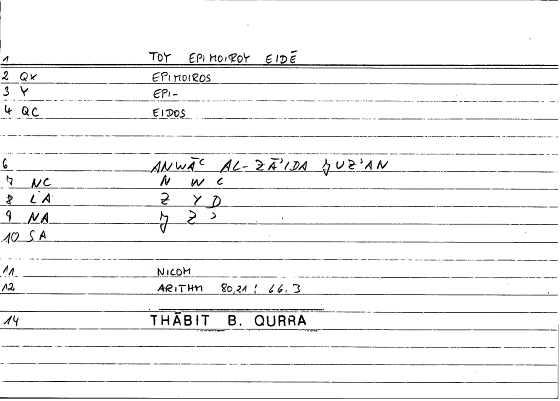 1 TOY EPIMOIROY EIDĒ
2 QX EPIMOIROS
3 Y EPI-
4 QC EIDOS
6 ANWĀC AL-ZĀ'IDA ǦUZ'AN
7 NC N W C
8 LA Z Y D
9 NA Ǧ Z '
10 SA
11 NICOM
12 ARITHM 80,21 : 66.3
14 THĀBIT B. QURRA